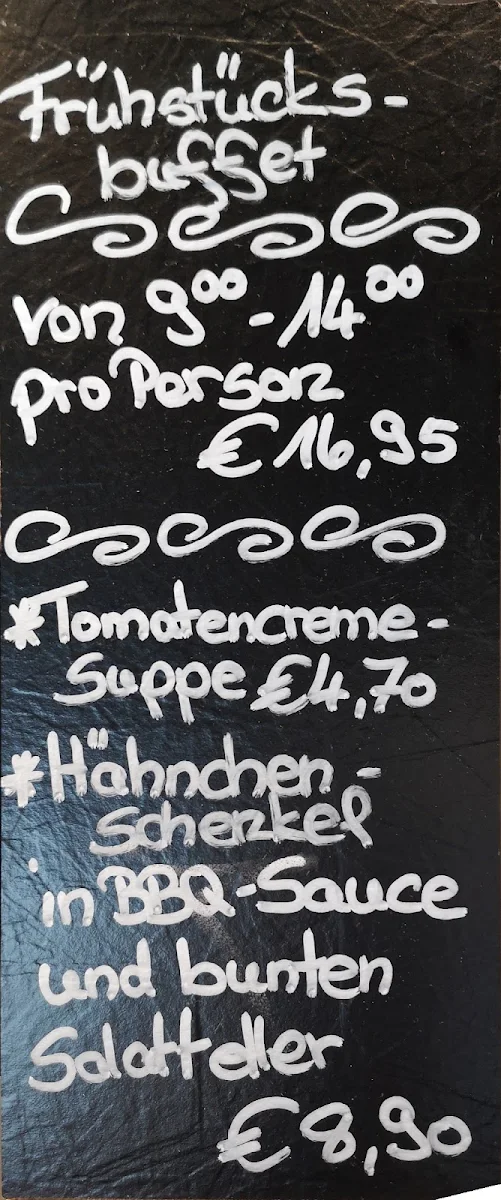 Frühstücks-
buffet
von 9⁰⁰ - 14⁰⁰
pro Person
€ 16,95
*Tomatencreme-
Suppe €4,70
*Hähnchen-
Schenkel
in BBQ-Sauce
und bunten
Salatteller
€ 8,90